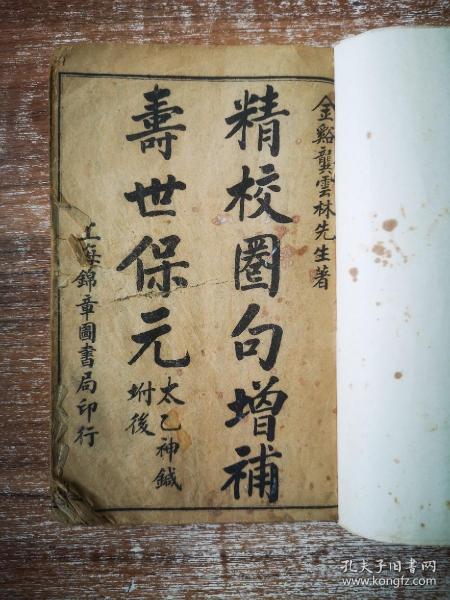 金谿龔雲林先生著
精校圈句增補
壽世保元
太乙神鍼
坿後
上海錦章圖書局印行
孔夫子旧书网
www.kongfz.com